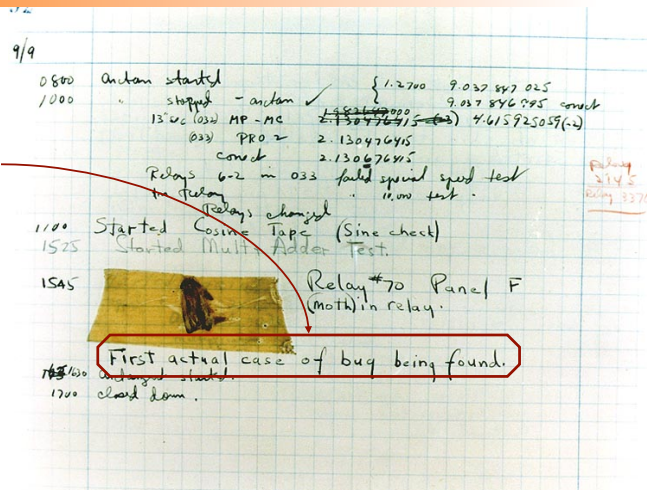 9/9
0800 Antan started
1000 " stopped - antan ✓ { 1.2700 9.037 847 025
9.037 846 995 conect
13"uc (032) MP - MC 2.130476415 (-3) 4.615925059(-2)
(033) PRO 2 2.130476415
conect 2.130676415
Relays 6-2 in 033 failed special speed test
in Relay " 10,000 test .
Relays changed
1100 Started Cosine Tape (Sine check)
1525 Started Multi Adder Test.
1545 Relay #70 Panel F
(moth) in relay.
First actual case of bug being found.
1630 antangent started.
1700 closed down .
Relay
2145
Relay 3370